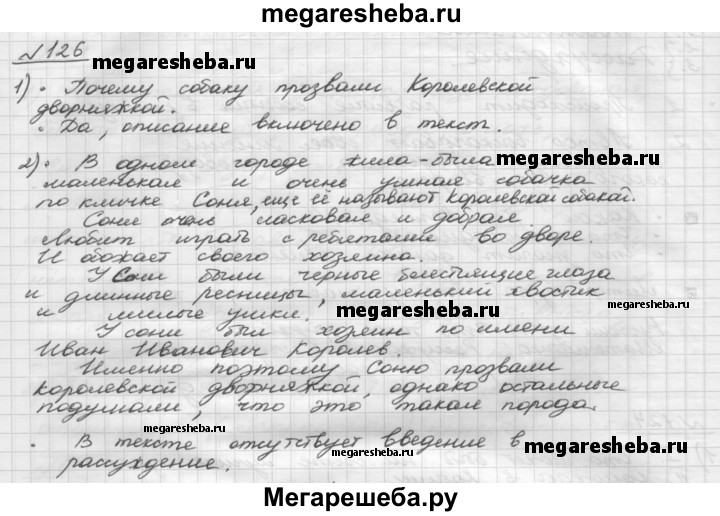 megaresheba.ru
№126
megaresheba.ru
1) • Почему собаку прозвали Королевской
дворняжкой.
• Да, описание включено в текст.
2) • В одном городе жила-была megaresheba.ru
маленькая и очень умная собачка
по кличке Соня, еще её называют Королевской собакой.
Соня очень ласковая и добрая
Любит играть с ребятами во дворе.
И обожает своего хозяина.
У Сони были черные блестящие глаза
и длинные ресницы, маленький хвостик
и милые ушки. megaresheba.ru megaresheba.ru
У сони был хозяин по имени
Иван Иванович Королев.
Именно поэтому Соню прозвали
королевской дворняжкой, однако остальные
подумали, что это такая порода.
megaresheba.ru
• В тексте отсутствует введение в megaresheba.ru
рассуждение.
megaresheba.ru
Мегарешеба.ру